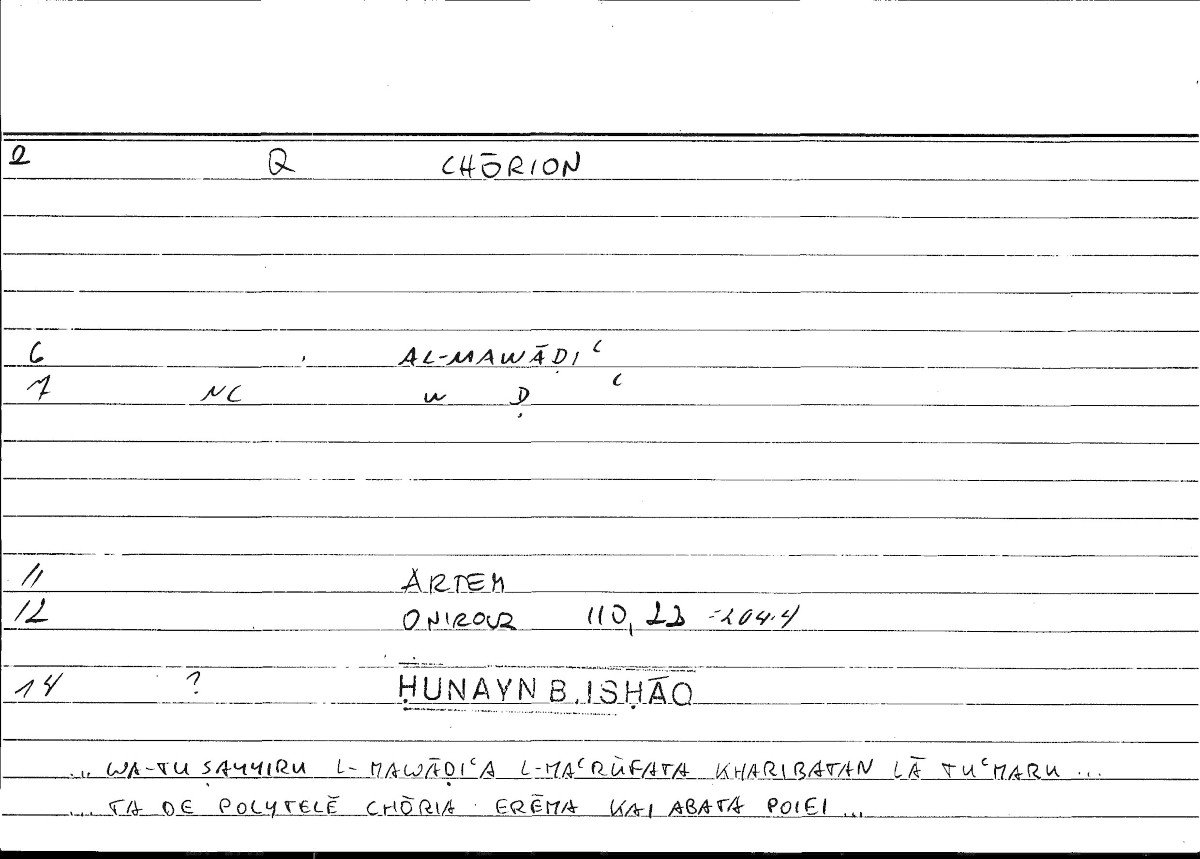 2 Q CHŌRION
6 AL-MAWĀḌIʿ
7 NC W Ḍ ʿ
11 ARTEM
12 ONIROCR 110, 22 = 204.4
14 ? ḤUNAYN B. ISḤĀQ
... WA-TUṢAYYIRU L-MAWĀḌIʿA L-MAʿRŪFATA KHARIBATAN LĀ TUʿMARU ...
... TA DE POLYTELĒ CHŌRIA ERĒMA KAI ABATA POIEI ...